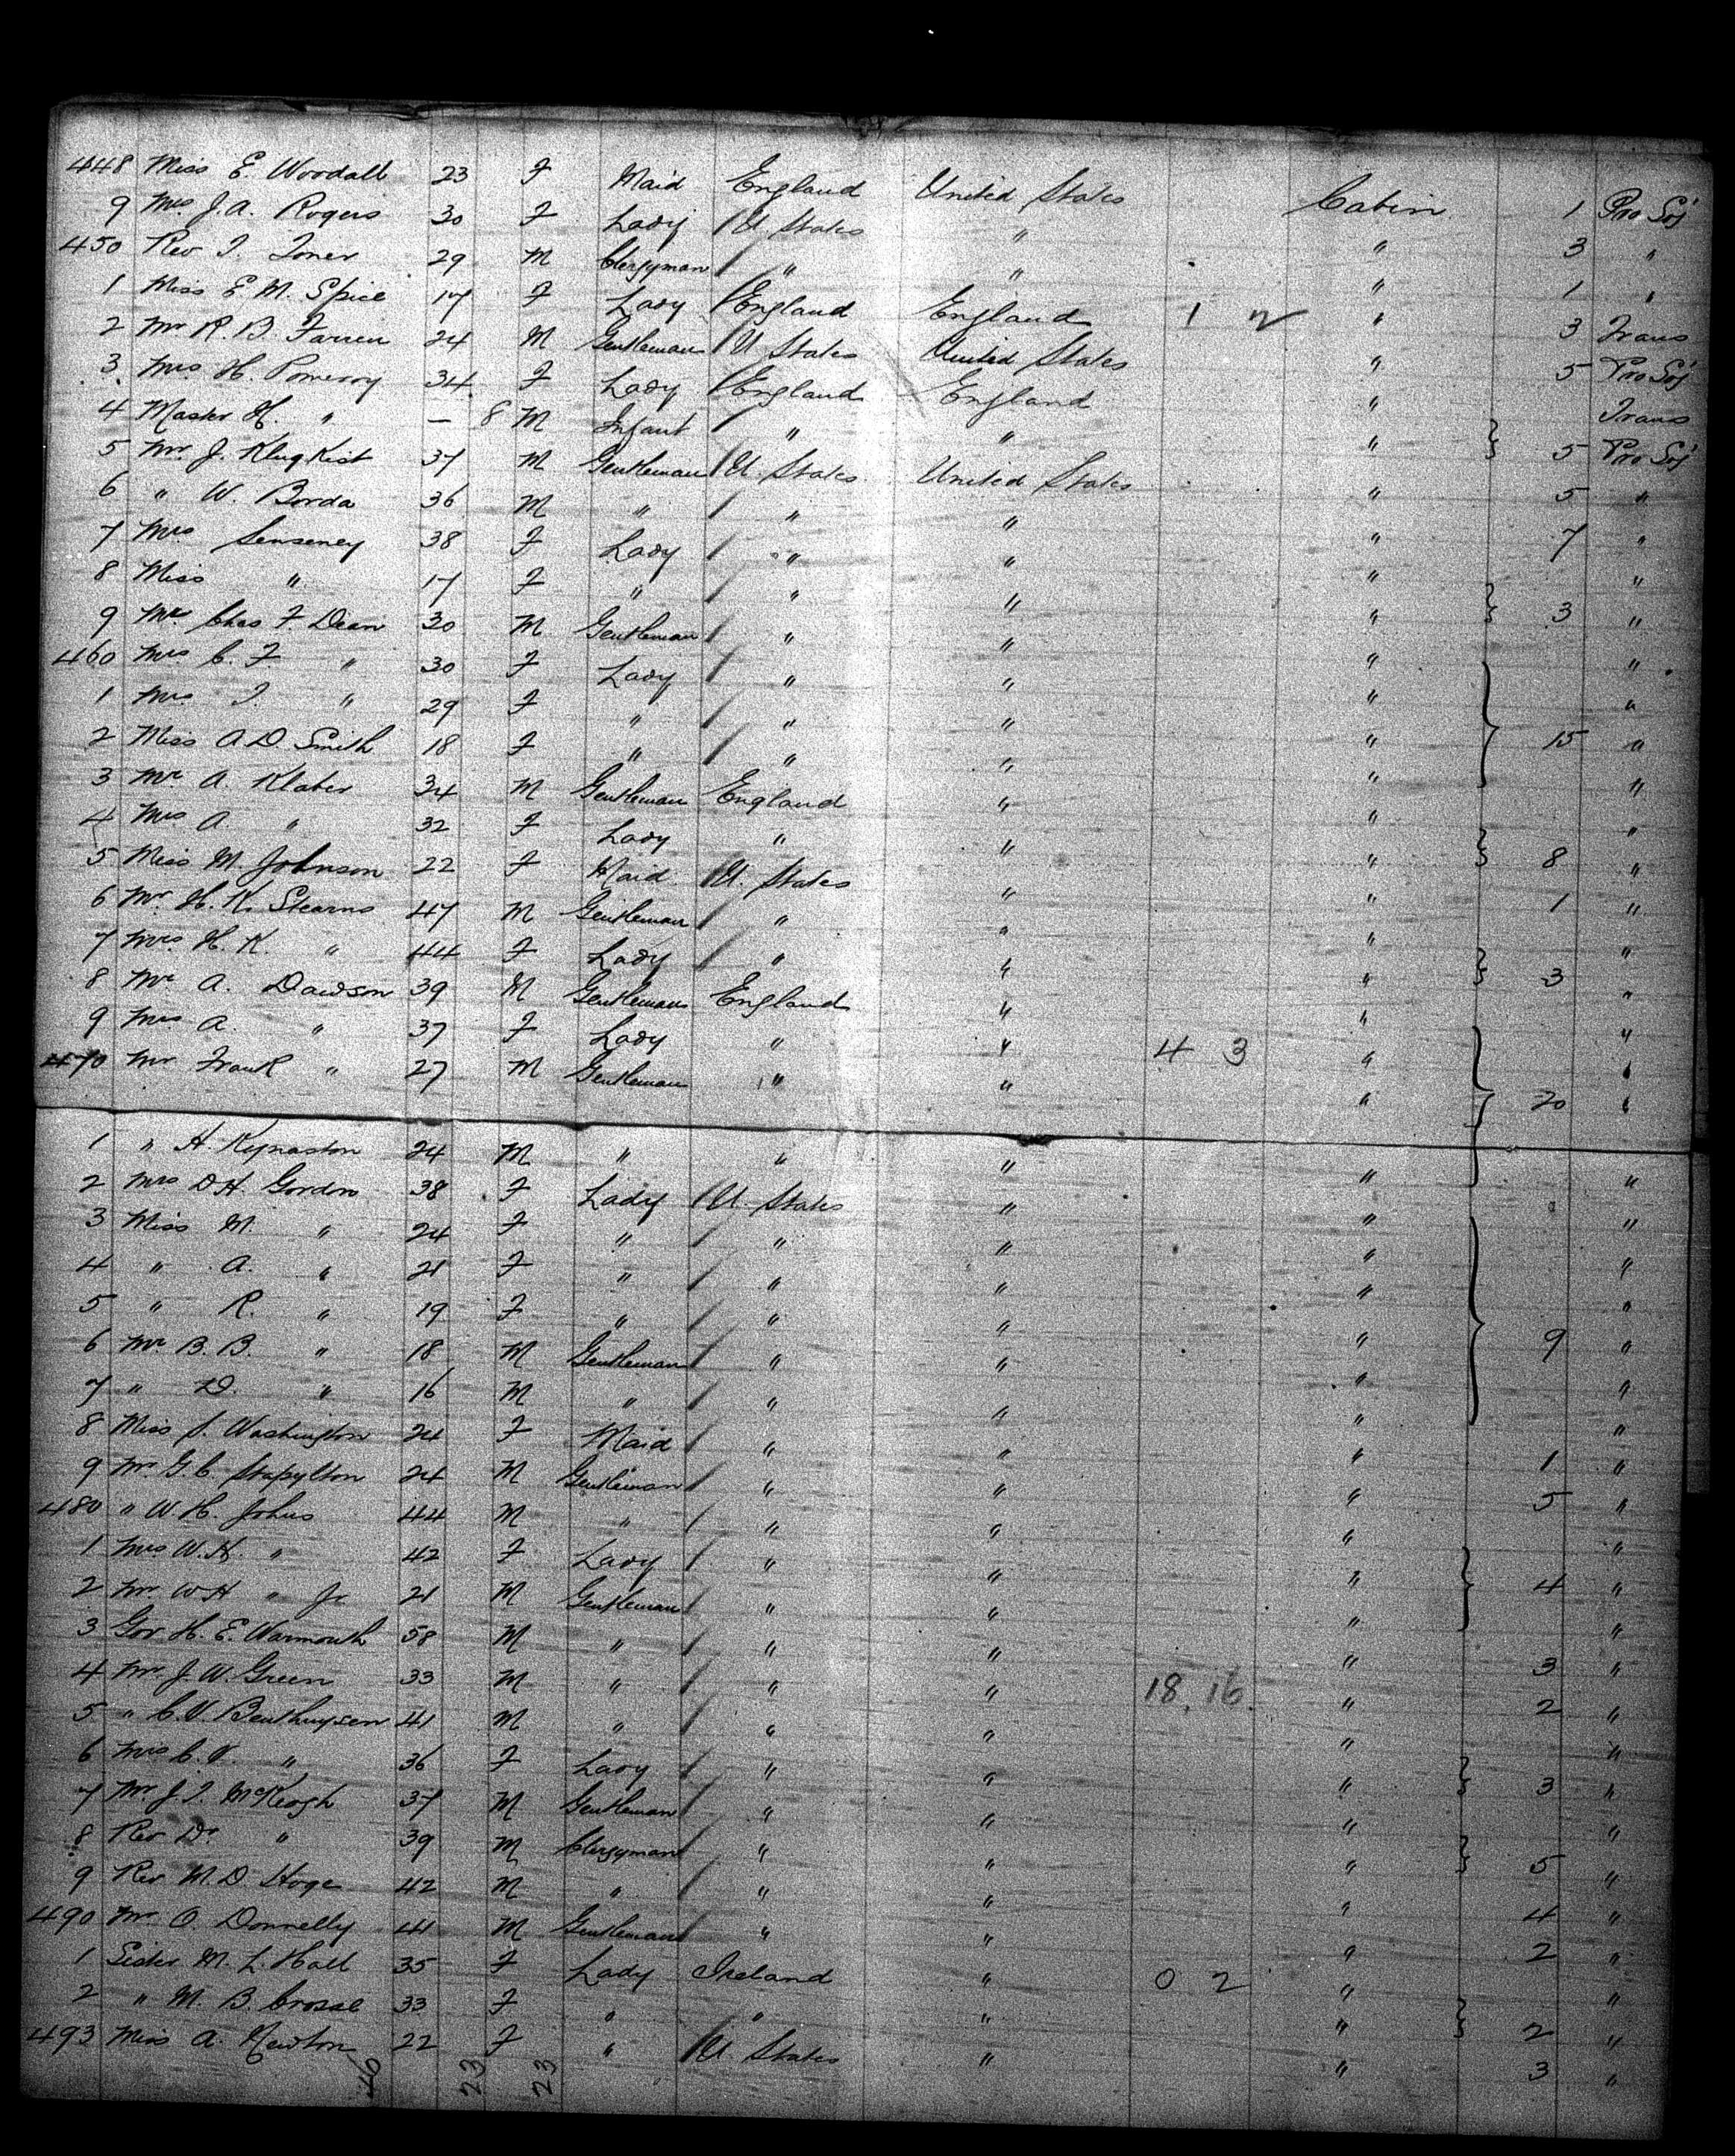 448 Miss E. Woodall 23 F Maid England United States Cabin 1 Pro Soj
9 Mrs J. A. Rogers 30 F Lady U States " " 3 "
450 Rev T. Toner 29 M Clergyman " " " 1 "
1 Miss E. M. Spice 17 F Lady England England 1 2 " 3 Trans
2 Mr R. B. Farren 24 M Gentleman U States United States " 5 Pro Soj
3 Mrs H. Pomeroy 34 F Lady England England " Trans
4 Master H. " — 8 M Infant " " " 5 Pro Soj
5 Mr J. Klugkist 37 M Gentleman U. States United States " 5 "
6 " W. Borda 36 M " " " " 7 "
7 Mrs Senseney 38 F Lady " " " "
8 Miss " 17 F " " " " 3 "
9 Mr Chas F. Dean 30 M Gentleman " " " "
460 Mrs C. F " 30 F Lady " " " "
1 Mrs T. " 29 F " " " " 15 "
2 Miss A. D. Smith 18 F " " " " "
3 Mr A. Klaber 34 M Gentleman England " " "
4 Mrs A. " 32 F Lady " " " 8 "
5 Miss M. Johnson 22 F Maid U. States " " 1 "
6 Mr H. K. Stearns 47 M Gentleman " " " "
7 Mrs H. K. " 44 F Lady " " " 3 "
8 Mr A. Dawson 39 M Gentleman England " " "
9 Mrs A. " 37 F Lady " " 4 3 " "
470 Mr Frank " 27 M Gentleman " " " 20 "
1 " H. Kynaston 24 M " " " " "
2 Mrs D. H. Gordon 38 F Lady U. States " " "
3 Miss M. " 24 F " " " " "
4 " A. " 21 F " " " " "
5 " R. " 19 F " " " " 9 "
6 Mr B. B. " 18 M Gentleman " " " "
7 " D. " 16 M " " " " "
8 Miss S. Washington 24 F Maid " " " 1 "
9 Mr G. C. Stapylton 24 M Gentleman " " " 5 "
480 " W. H. Johns 44 M " " " " "
1 Mrs W. H. " 42 F Lady " " " 4 "
2 Mr W H " Jr 21 M Gentleman " " " "
3 Gov H. E. Warmouth 58 M " " " " 3 "
4 Mr J. W. Green 33 M " " " 18 16 " 2 "
5 " C. V. Benthuysen 41 M " " " " "
6 Mrs C. V. " 36 F Lady " " " 3 "
7 Mr J. T. McKeogh 37 M Gentleman " " " "
8 Rev D. " 39 M Clergyman " " " 5 "
9 Rev M. D. Hoge 42 M " " " " 4 "
490 Mr O. Donnelly 41 M Gentleman " " " 2 "
1 Sister M. L. Hall 35 F Lady Ireland " 0 2 " "
2 " M. B. Crosse 33 F " " " " 2 "
493 Miss A. Newton 22 F " U States " " 3 "
46 23 23